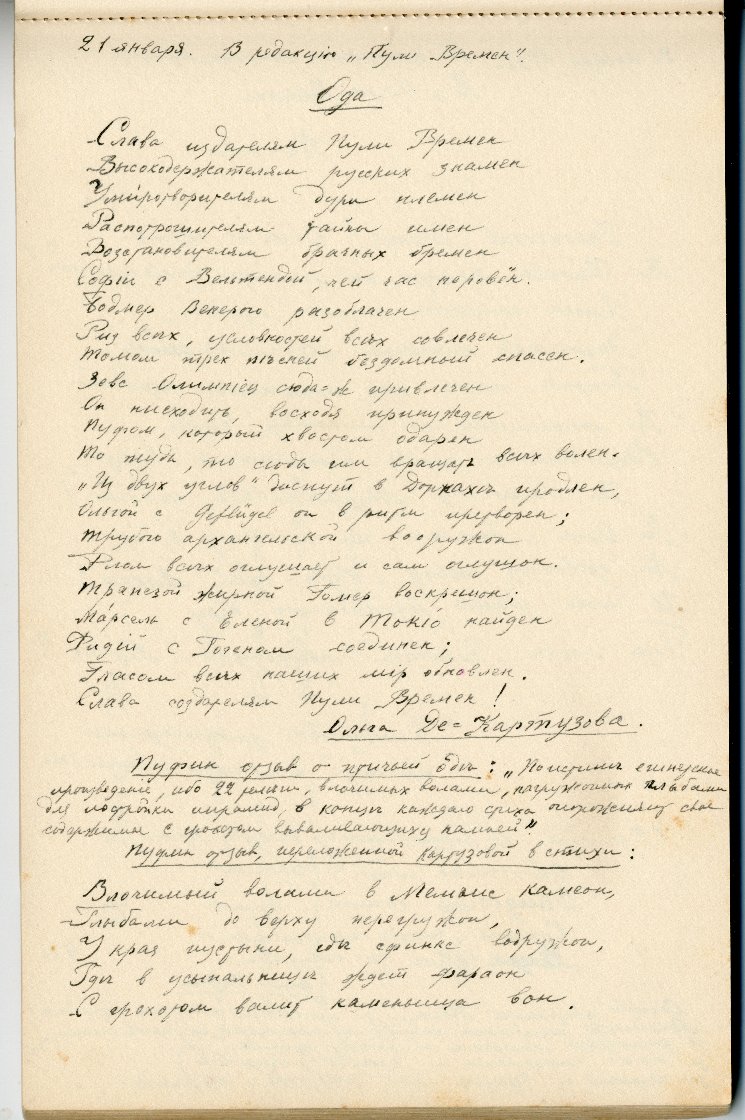 21 января. В редакцію „Пули Времен“.
Ода
Слава издателям Пули Времен
Высокодержателям русских знамен
Умиротворителям дури племен
Распотрошителям тайны имен
Возстановителям брачных бремен
Софіи с Вельтендой, чей час неровён.
Бодмер Венерою разоблачен
Риз всѣх, условностей всѣх совлечен
Томом трех пѣсней бездомный спасен.
Зевс Олимпіец сюда-ж привлечен
Он нисходить, восходя принужден
Пуфом, который хвостом одарен
То туды, то сюды им вращать всѣх волен.
„Из двух углов“ диспут в Дорнахѣ продлен,
Ольгой с Geflügel он в ритм претворен;
Трубою архангельской вооружон
Ріом всѣх оглушает и сам оглушон.
Трапезой жирной Гомер воскрешон;
Марсель с Еленой в Токіо найден
Фидій с Гогеном соединен;
Гласом всѣх наших мір обновлен.
Слава создателям Пули Времен!
Ольга Де-Картузова.
Пуфин отзыв о причтой Одѣ: „Поистинѣ египетское
произведеніе, ибо 22 телѣги, влочимых волами, нагружонных глыбами
для постройки пирамид, в концѣ каждаго стиха опорожняют свое
содержимое с грохотом вываливающихся камней“
Пуфин отзыв, переложенной Картузовой в стихи:
Влочимый волами в Мемфис камеон,
Глыбами до верху перегружон,
У края пустыни, гдѣ сфинкс водружон,
Гдѣ в усыпальницѣ ждет фараон
С грохотом валит каменьица вон.